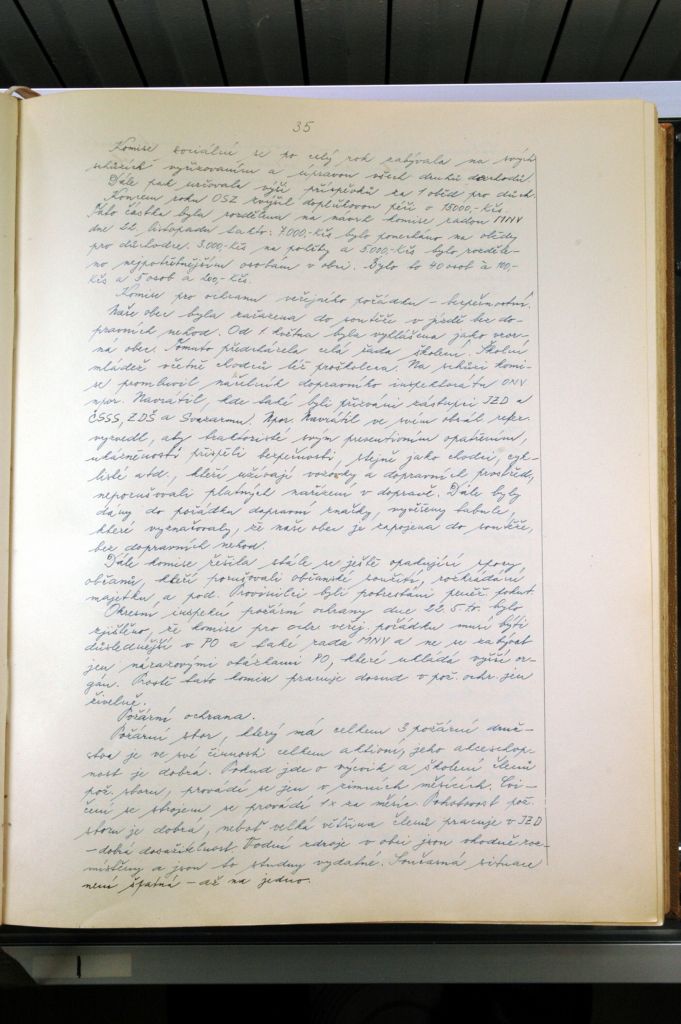 35
Komise sociální se po celý rok zabývala na svých
schůzích vyřizováním a úpravou všech druhů důchodů
Dále pak určovala výši příspěvků za 1 oběd pro důch.
Koncem roku OSZ zvýšil doplňkovou péči o 15000,-Kčs.
Tato částka byla rozdělena na návrh komise radou MNV
dne 22. listopadu takto: 7.000,-Kčs bylo ponecháno na obědy
pro důchodce. 3.000,-Kčs na pobyty a 5.000,-Kčs bylo rozděle-
no nejpotřebnějším osobám v obci. Bylo to 40 osob à 100,-
Kčs a 5 osob à 200,-Kčs.
Komise pro ochranu veřejného pořádku - bezpečnostní.
Naše obec byla zařazena do soutěže v jízdě bez do-
pravních nehod. Od 1. května byla vyhlášena jako vzor-
ná obec. Tomuto předcházela celá řada školení. Školní
mládež včetně chodců též proškolena. Na schůzi komi-
se promluvil náčelník dopravního inspektorátu ONV
npor. Navrátil, kde také byli přizváni zástupci JZD a
ČSSS, ZDŠ a Svazarmu. Npor. Navrátil ve svém obsáh. refer.
vyzvedl, aby traktoristé svým preventivním opatřením,
ukázněností přispěli bezpečnosti, stejně jako chodci, cyk-
listé atd., kteří užívají vozovky a dopravních prostřed.,
neporušovali platných nařízení v dopravě. Dále byly
dány do pořádku dopravní značky, vyvěšeny tabule,
které vyznačovaly, že naše obec je zapojena do soutěže,
bez dopravních nehod.
Dále komise řešila stále se ještě opakující spory,
občanů, kteří porušovali občanské soužití, rozkrádání
majetku a pod. Provinilci byli potrestáni peněž. pokut.
Okresní inspekcí požární ochrany dne 22.5. to. bylo
zjištěno, že komise pro ochr. veřej. pořádku musí býti
důslednější v PO a také rada MNV a ne se zabývat
jen nárazovými otázkami PO, které ukládá vyšší or-
gán. Prostě tato komise pracuje dosud v pož. ochr. jen
živelně.
Požární ochrana.
Požární sbor, který má celkem 3 požární druž-
stva je ve své činnosti celkem aktivní, jeho akceschop-
nost je dobrá. Pokud jde o výcvik a školení členů
pož. sboru, provádí se jen v zimních měsících. Cvi-
čení se strojem se provádí 1x za měsíc. Pohotovost pož.
sboru je dobrá, neboť velká většina členů pracuje v JZD
- dobrá dosažitelnost. Vodní zdroje v obci jsou vhodně roz-
místěny a jsou to studny vydatné. Současná situace
není špatná - až na jedno.